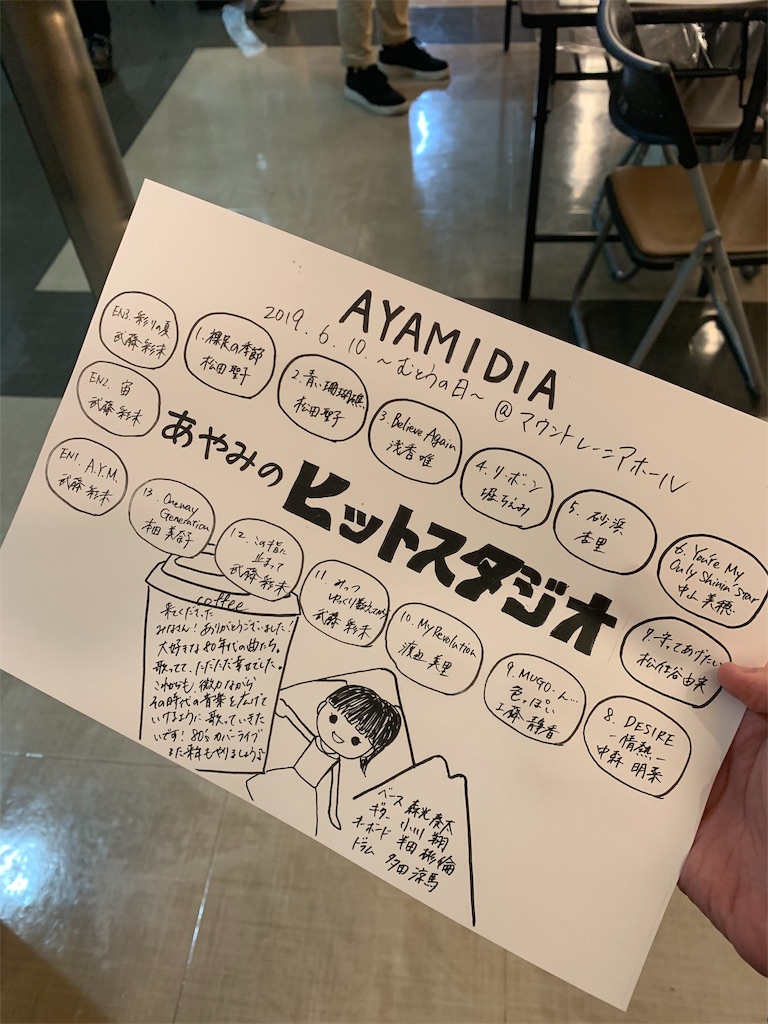 AYAMIDIA
2019.6.10.~むとうの日~@マウントレーニアホール
あやみの
ヒットスタジオ
1. 裸足の季節
松田聖子
2. 青い珊瑚礁
松田聖子
3. Believe Again
浅香唯
4. リ・ボ・ン
堀ちえみ
5. 砂浜
杏里
6. You're My
Only Shinin' Star
中山美穂
7. 守ってあげたい
松任谷由実
8. DESIRE
-情熱-
中森明菜
9. MUGO・ん…
色っぽい
工藤静香
10. My Revolution
渡辺美里
11. めっ
ゆっくり教えて
武藤彩未
12. この指に
止まって
武藤彩未
13. Oneway
Generation
本田美奈子
EN1. A.Y.M.
武藤彩未
EN2. 宙
武藤彩未
EN3. 彩りの夏
武藤彩未
coffee
来てくださった
みなさん!ありがとうございました!
大好きな80年代の曲たち。
歌ってて、ただただ幸せでした。
これからも、微力ながら
その時代の音楽を広げて
いけるように歌っていきた
いです!80'sカバーライブ
また来年もやりましょう♪
ベース 森光奏太
ギター 小川翔
キーボード 半田彬倫
ドラム 多田涼馬